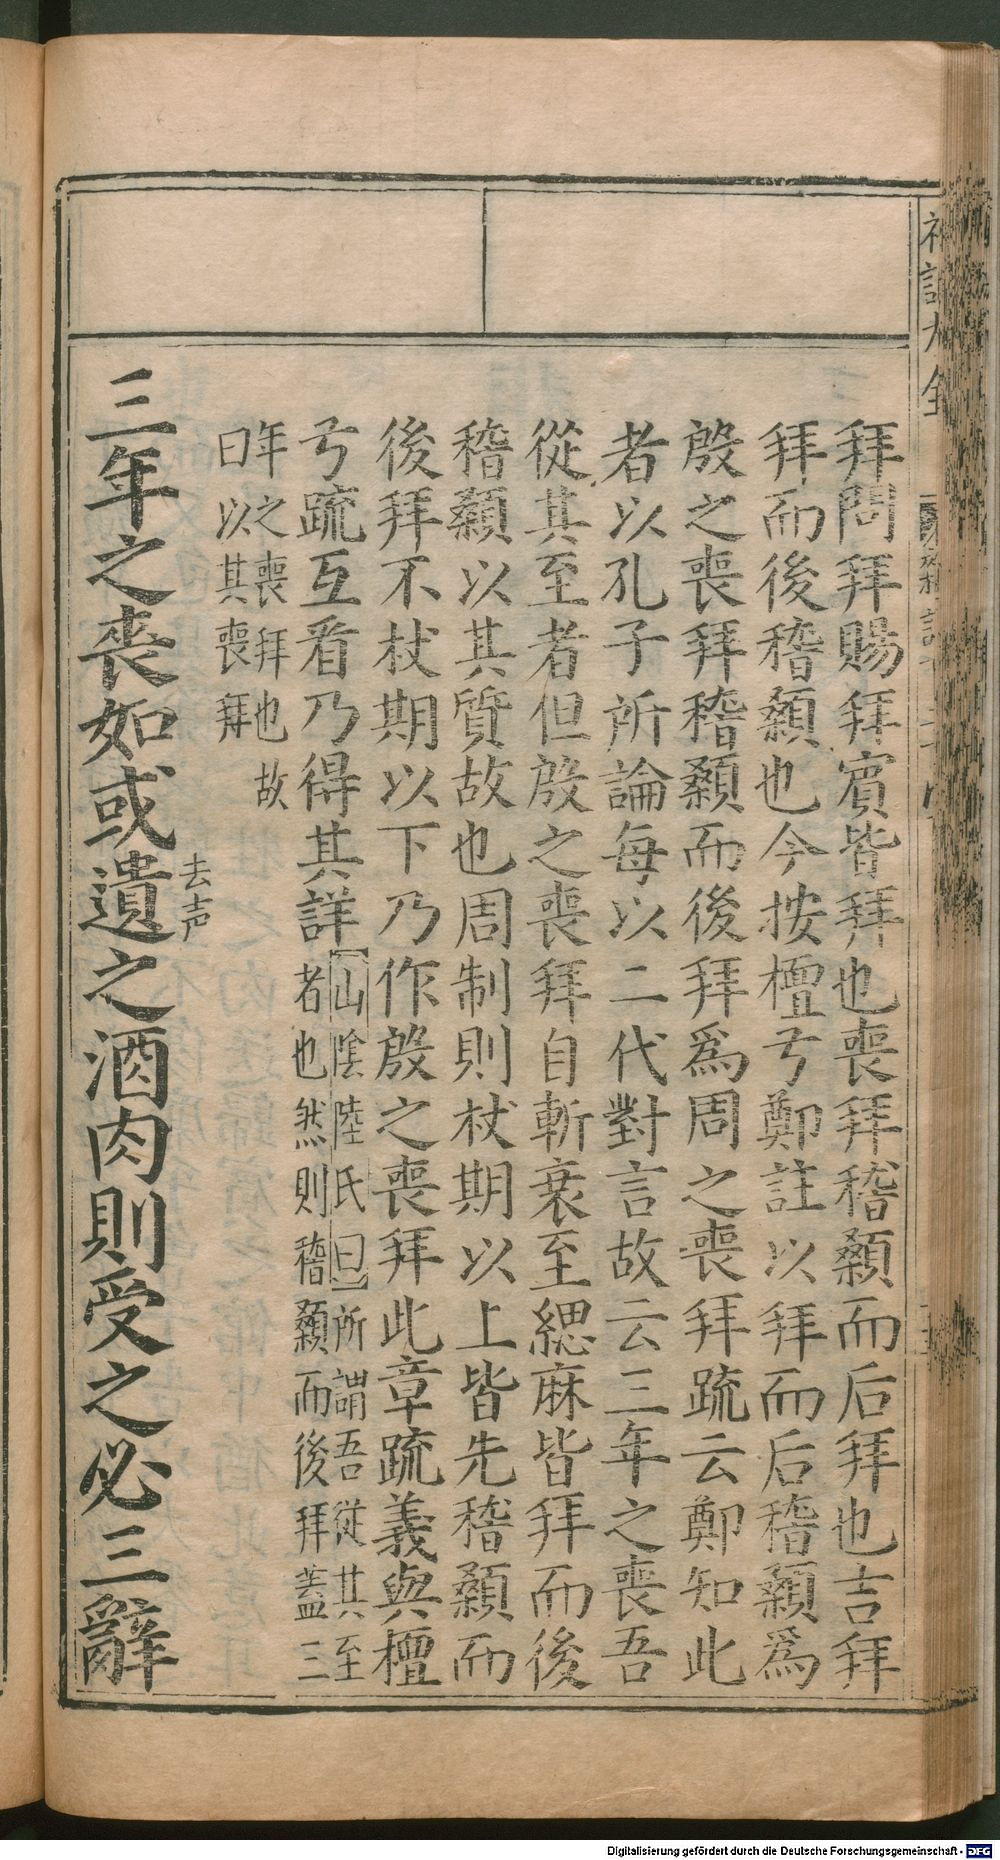 拜問拜賜拜賓皆拜也喪拜稽顙而后拜也吉拜
拜而後稽顙也今按檀弓鄭註以拜而后稽顙爲
殷之喪拜稽顙而後拜爲周之喪拜疏云鄭知此
者以孔子所論每以二代對言故云三年之喪吾
從其至者但殷之喪拜自斬衰至緦麻皆拜而後
稽顙以其質故也周制則杖期以上皆先稽顙而
後拜不杖期以下乃作殷之喪拜此章疏義與檀
弓疏互看乃得其詳
山陰陸氏曰所謂吾從其至
者也然則稽顙而後拜蓋三
年之喪拜也故
曰以其喪拜
三年之喪如或遺
去声
之酒肉則受之必三辭
Digitalisierung gefördert durch die Deutsche Forschungsgemeinschaft - DFG